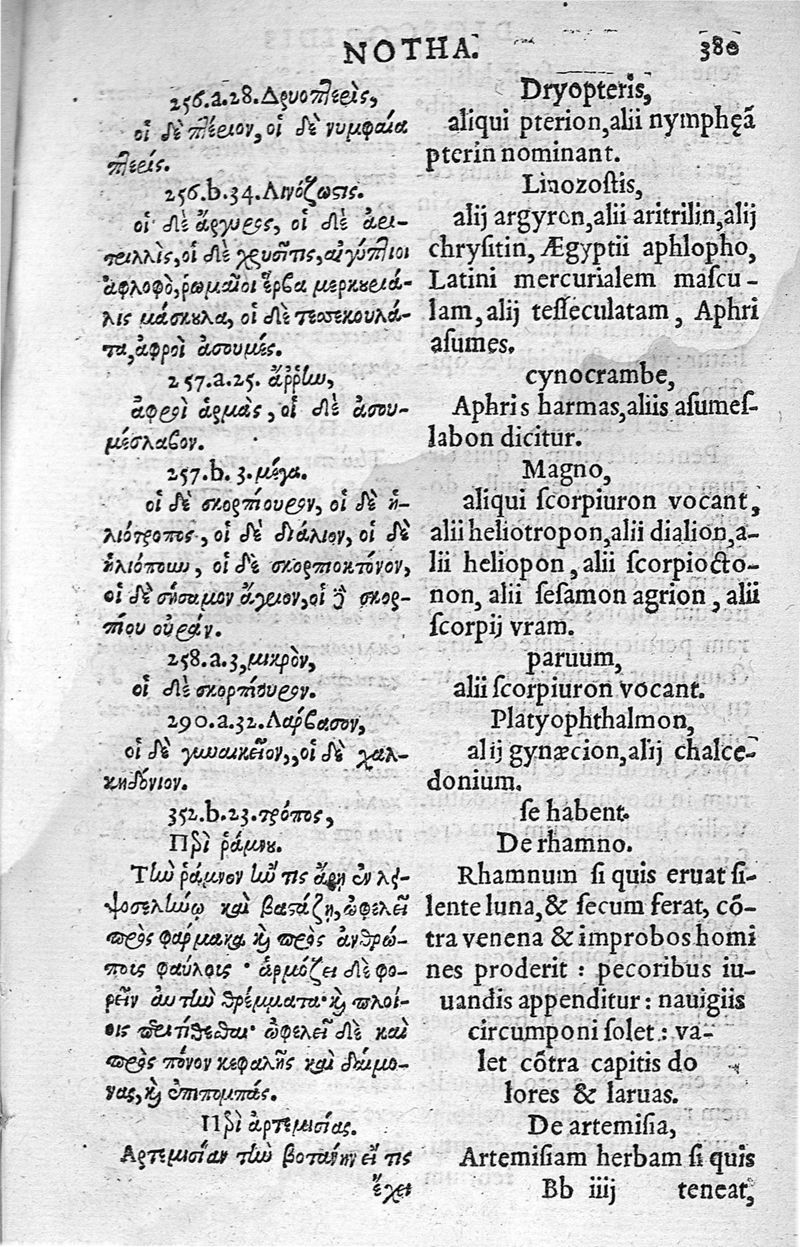 NOTHA. 380
256.a.28.Δρυοπτερὶς,
οἱ δὲ πτέριον, οἱ δὲ νυμφαία
πτερίς.
256.b.34.Λινόζωστις.
οἱ δὲ ἄργυρος, οἱ δὲ ἀρι-
τριλλὶς, οἱ δὲ χρυσῖτις, αἰγύπτιοι
ἀφλοφὸ, ῥωμαῖοι ἕρβα μερκουριά-
λις μάσκουλα, οἱ δὲ τεστεκουλά-
τα, ἀφροὶ ἀσουμές.
257.a.25. ἄῤῥεν,
ἀφροὶ ἁρμὰς, οἱ δὲ ἀσου-
μέσλαβον.
257.b.3.μέγα.
οἱ δὲ σκορπίουρον, οἱ δὲ ἡ-
λιότροπος, οἱ δὲ διάλιον, οἱ δὲ
οἱ δὲ σκορπιοκτόνον,
οἱ δὲ σήσαμον ἄγριον, οἱ δὲ σκορ-
πίου οὐράν.
258.a.3, μικρὸν,
οἱ δὲ σκορπίουρον.
290.a.32.Λάρβασον,
οἱ δὲ γυναικεῖον,, οἱ δὲ χαλ-
κηδόνιον.
352.b.23.τρόπος,
Περὶ ῥάμνου.
Τὴν ῥάμνον ἐάν τις ἄρῃ ἐν λει-
ψοσελήνῳ καὶ βαστάζῃ, ὠφελεῖ
πρὸς φάρμακα καὶ πρὸς ἀνθρώ-
ποις φαύλοις · ἁρμόζει δὲ φο-
ρεῖν αὐτὴν θρέμματα· καὶ πλοί-
οις περιτίθεσθαι· ὠφελεῖ δὲ καὶ
πρὸς πόνον κεφαλῆς καὶ δαίμο-
νας, καὶ ἐπιπομπάς.
Περὶ ἀρτεμισίας.
Αρτεμισίαν τὴν βοτάνην εἴ τις
ἔχει
Dryopteris,
aliqui pterion,alii nymphęã
pterin nominant.
Linozostis,
alij argyron,alii aritrilin,alij
chrysitin, Ægyptii aphlopho,
Latini mercurialem mascu-
lam, alij tesseculatam, Aphri
asumes.
cynocrambe,
Aphris harmas,aliis asumes-
labon dicitur.
Magno,
aliqui scorpiuron vocant,
alii heliotropon,alii dialion,a-
lii heliopon, alii scorpiocto-
non, alii sesamon agrion, alii
scorpij vram.
paruum,
alii scorpiuron vocant.
Platyophthalmon,
alij gynæcion, alij chalce-
donium.
se habent.
De rhamno.
Rhamnum si quis eruat si-
lente luna,& secum ferat, cõ-
tra venena & improbos homi
nes proderit : pecoribus iu-
uandis appenditur : nauigiis
circumponi solet : va-
let cõtra capitis do
lores & laruas.
De artemisia,
Artemisiam herbam si quis
Bb iiij teneat,